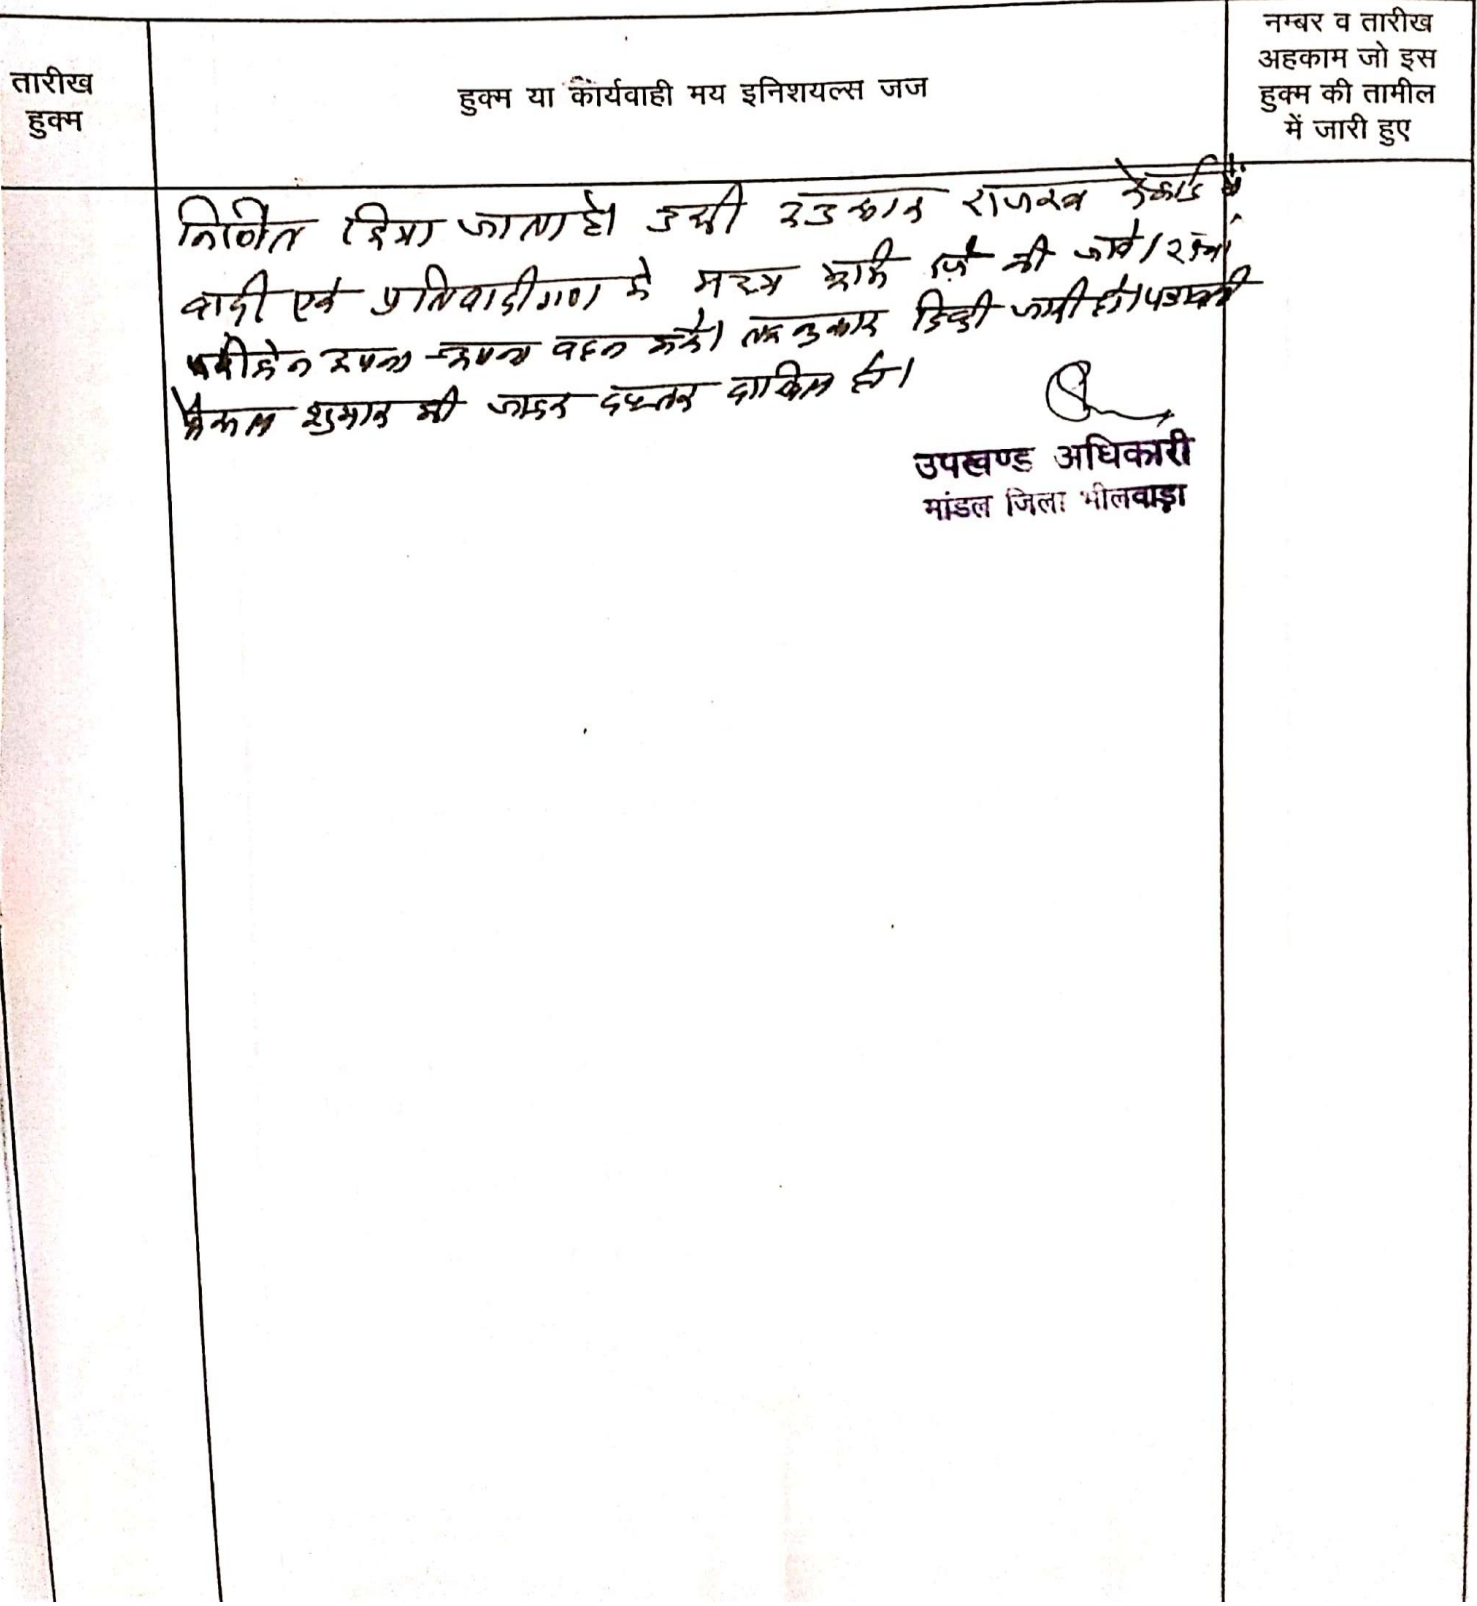 तारीख
हुक्म
हुक्म या कार्यवाही मय इनिशयल्स जज
नम्बर व तारीख
अहकाम जो इस
हुक्म की तामील
में जारी हुए
निर्णित किया जाता है। इसी अनुसार राजस्व रेकार्ड में
वादी एवं प्रतिवादीगण के मध्य की जावे। खर्चा
पक्षकारान अपना-अपना वहन करे। तदनुसार डिक्री जारी हो। पत्रावली
फैसल शुमार की जाकर दफ्तर दाखिल हो।
उपखण्ड अधिकारी
मांडल जिला भीलवाड़ा